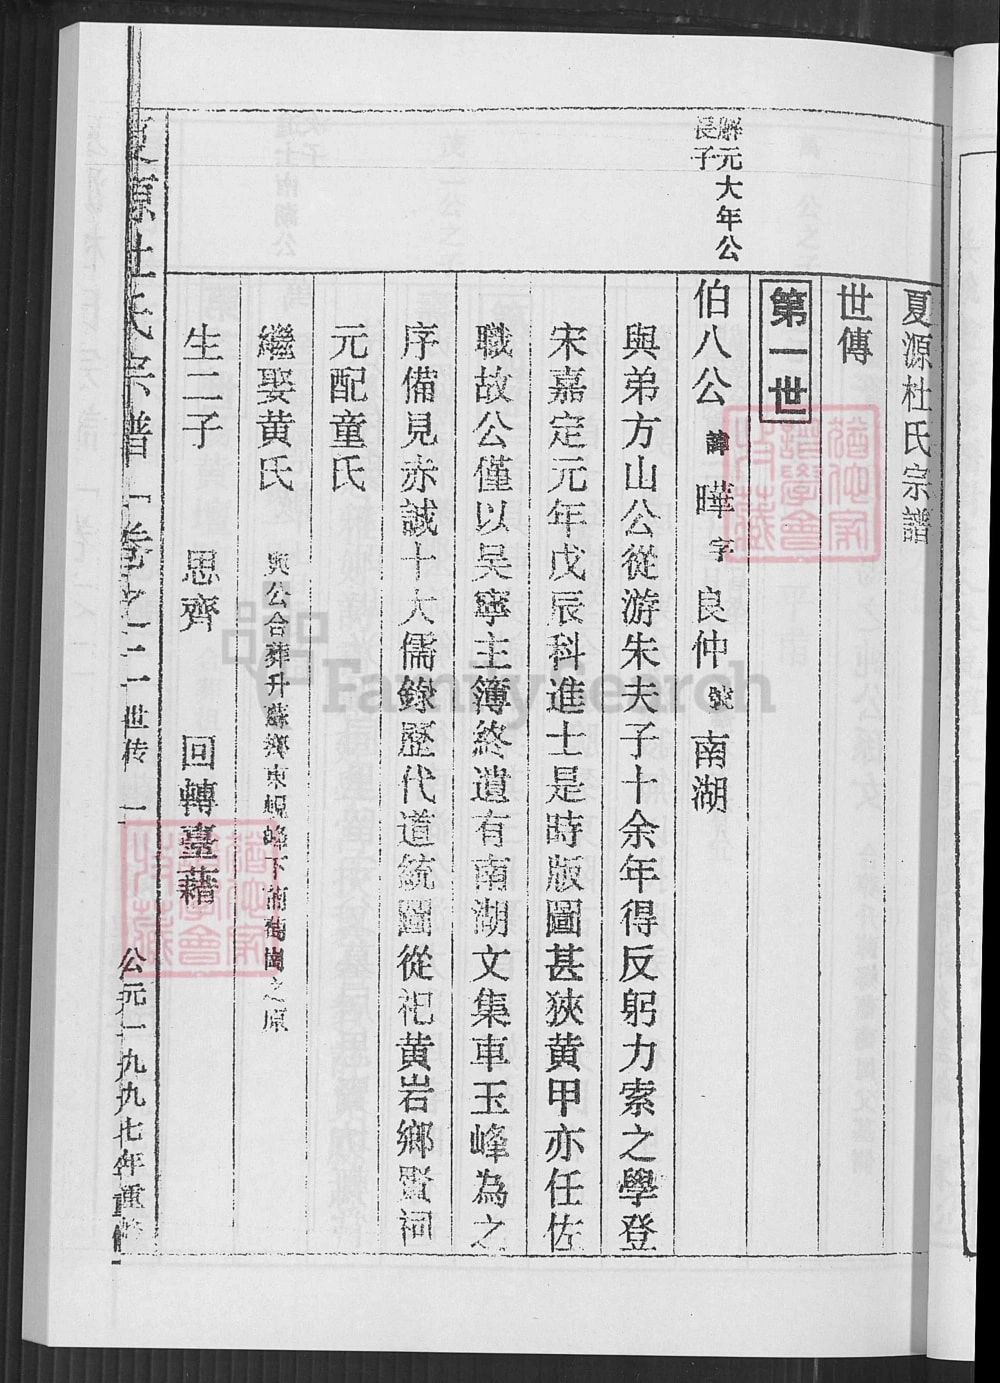 夏源杜氏宗譜
世傳
第一世
解元大年公
長子
伯八公 諱 曄 字 良仲 號 南湖
與弟方山公從游朱夫子十余年得反躬力索之學登
宋嘉定元年戊辰科進士是時版圖甚狹黄甲亦任佐
職故公僅以吴寧主簿終遺有南湖文集車玉峰為之
序備見赤誠十大儒錄歷代道統圖從祀黄岩鄉賢祠
元配童氏
繼娶黄氏 與公合葬升蘇鄉東蜆峰下葡萄崗之原
生二子 思齊 回轉臺藉
夏源杜氏宗譜 卷之二 世传 一 公元一九九七年重修
猶他家
譜學會
收藏
猶他家
譜學會
收藏
FamilySearch